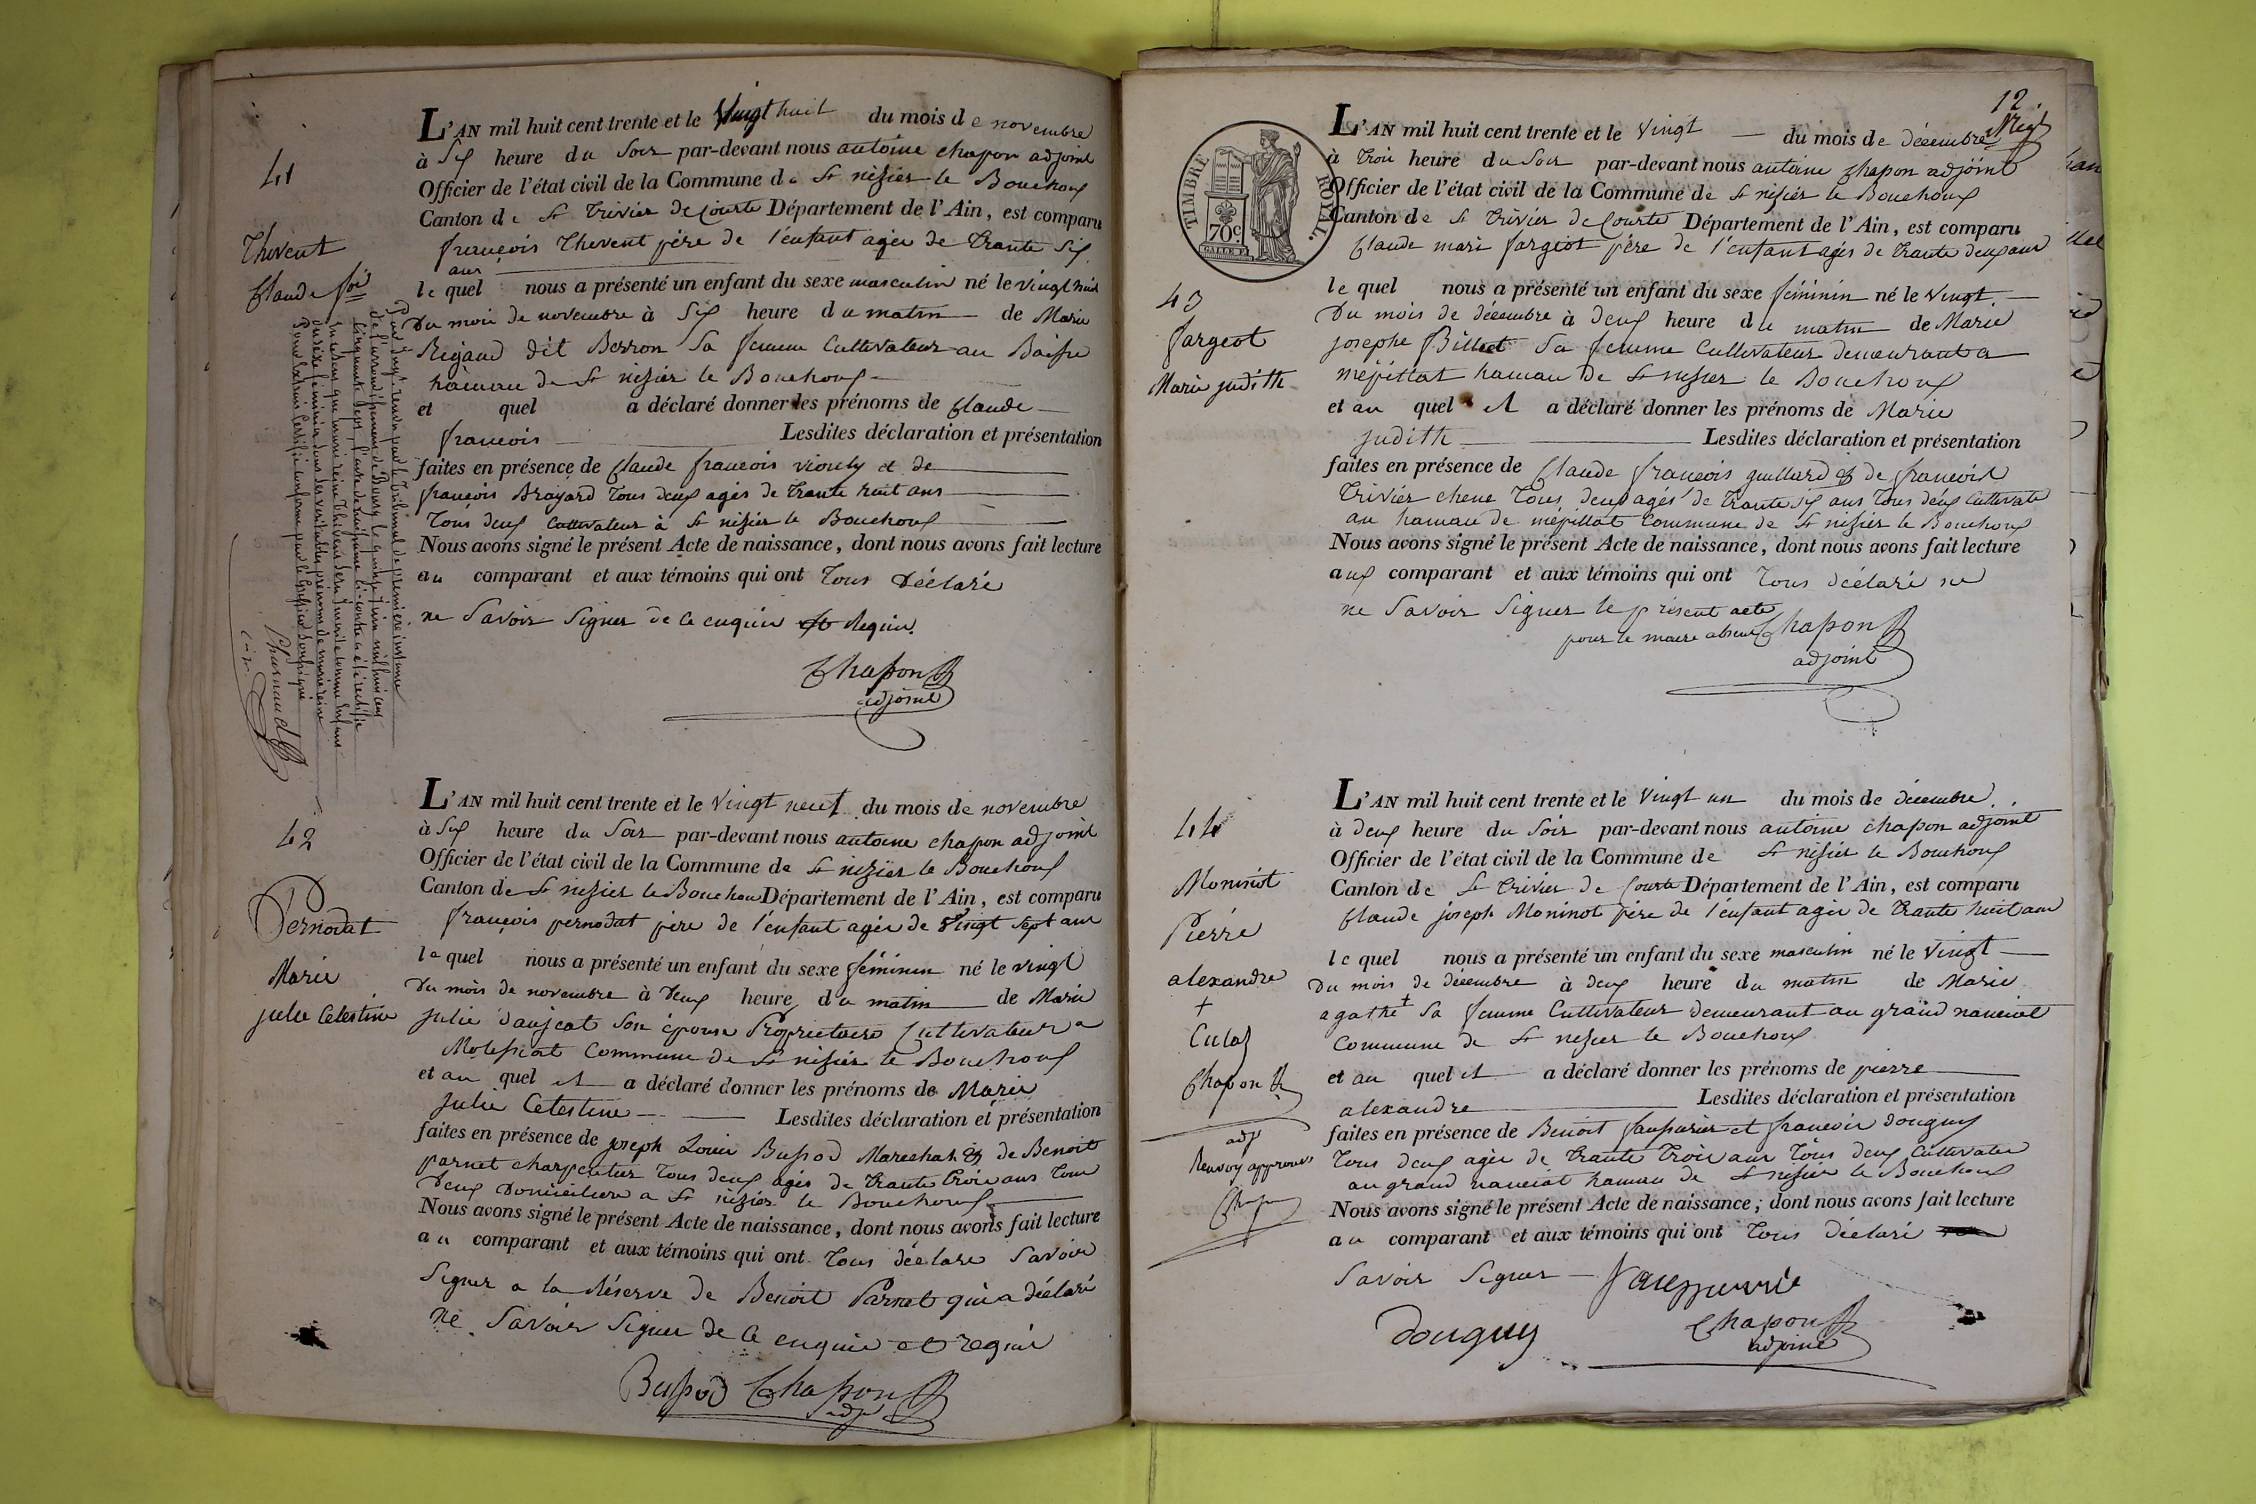 41
Thevent
Claude fois
L'AN mil huit cent trente et le Vingt huit du mois de novembre
à Six heure du Soir par-devant nous antoine chapon adjoint
Officier de l'état civil de la Commune de St nizier le Bouchoux
Canton de St trivier de Courte Département de l'Ain, est comparu
françois Thevent père de l'enfant agée de trante Six
ans
le quel nous a présenté un enfant du sexe masculin né le vingt huit
Du mois de novembre à Six heure du matin de Marie
Rigaud dit Berron Sa femme Cultivateur au
hameau de St nizier le Bouchoux
et quel a déclaré donner les prénoms de Claude
francois Lesdites déclaration et présentation
faites en présence de Claude francois viouly et de
francois Brayard tous deux agés de trante huit ans
Tous deux Cultivateur à St nizier le Bouchoux
Nous avons signé le présent Acte de naissance, dont nous avons fait lecture
au comparant et aux témoins qui ont Tous Déclaré
ne Savoir Signer de ce enquir et Requir.
Chapon
adjoint
Par jugt rendu par le tribunal de première instance
de l'arrondissement de Bourg le quinze juin mil huit cent
cinquante sept, l'acte de naissance ci-contre a été rectifié
en ce sens que marie reine Thevent sera inscrite comme enfant
du sexe féminin sous ses véritables prénoms de marie reine
42
Pernodat
Marie
julie Celestine
L'AN mil huit cent trente et le Vingt neuf du mois de novembre
à Six heure du Soir par-devant nous antoine chapon adjoint
Officier de l'état civil de la Commune de St nizier le Bouchoux
Canton de St nizier le Bouchou Département de l'Ain, est comparu
françois pernodat père de l'enfant agée de Vingt Sept ans
le quel nous a présenté un enfant du sexe féminin né le vingt
Du mois de novembre à Deux heure du matin de Marie
julie daujeat Son épouse Proprietaire Cultivateur a
Commune de St nizier le Bouchoux
et au quel et a déclaré donner les prénoms de Marie
Julie Celestine Lesdites déclaration et présentation
faites en présence de joseph Louis Bussod Marechal et de Benoit
parnet charpentier tous deux agés de trante trois ans tous
Deux Domicilier a St nizier le Bouchoux
Nous avons signé le présent Acte de naissance, dont nous avons fait lecture
au comparant et aux témoins qui ont Tous déclare Savoir
Signer a la Réserve de Benoit Parnet qui a déclaré
ne Savoir Signer de ce enquir et requir
Bussod Chapon
adj
12
TIMBRE ROYAL
70c
43
fargeot
Marie judith
L'AN mil huit cent trente et le vingt du mois de décembre
à trois heure du Soir par-devant nous antoine chapon adjoint
Officier de l'état civil de la Commune de St nizier le Bouchoux
Canton de St trivier de Courte Département de l'Ain, est comparu
Claude mari fargeot père de l'enfant agés de trante deux ans
le quel nous a présenté un enfant du sexe féminin né le vingt
Du mois de décembre à deux heure du matin de Marie
josephe Billet Sa femme Cultivateur demeurant a
mépillat hameau de St nizier le Bouchoux
et au quel et a déclaré donner les prénoms de Marie
judith Lesdites déclaration et présentation
faites en présence de Claude françois guillard et de françois
trivier chene Tous deux agés de trante Six ans tous deux Cultivate
au hameau de mépillat Commune de St nizier le Bouchoux
Nous avons signé le présent Acte de naissance, dont nous avons fait lecture
aux comparant et aux témoins qui ont Tous déclaré ne
ne Savoir Signer le présent acte
pour le maire absent Chapon
adjoint
44
Moninot
Pierre
alexandre
+
Culas
Chapon
adj
Renvoy approuvé
L'AN mil huit cent trente et le Vingt un du mois de décembre
à deux heure du Soir par-devant nous antoine chapon adjoint
Officier de l'état civil de la Commune de St nizier le Bouchoux
Canton de St trivier de Courte Département de l'Ain, est comparu
Claude joseph Moninot père de l'enfant agée de trante huit ans
le quel nous a présenté un enfant du sexe masculin né le vingt
Du mois de décembre à deux heure du matin de Marie
agathe + Sa femme Cultivateur demeurant au grand nanciat
Commune de St nizier le Bouchoux
et au quel et a déclaré donner les prénoms de pierre
alexandre Lesdites déclaration et présentation
faites en présence de Benoit et francois douguy
Tous deux agée de trante trois ans Tous deux Cultivater
au grand nanciat hameau de St nizier le Bouchoux
Nous avons signé le présent Acte de naissance; dont nous avons fait lecture
au comparant et aux témoins qui ont Tous déclaré
Savoir Signer
douguy
Chapon
adjoint